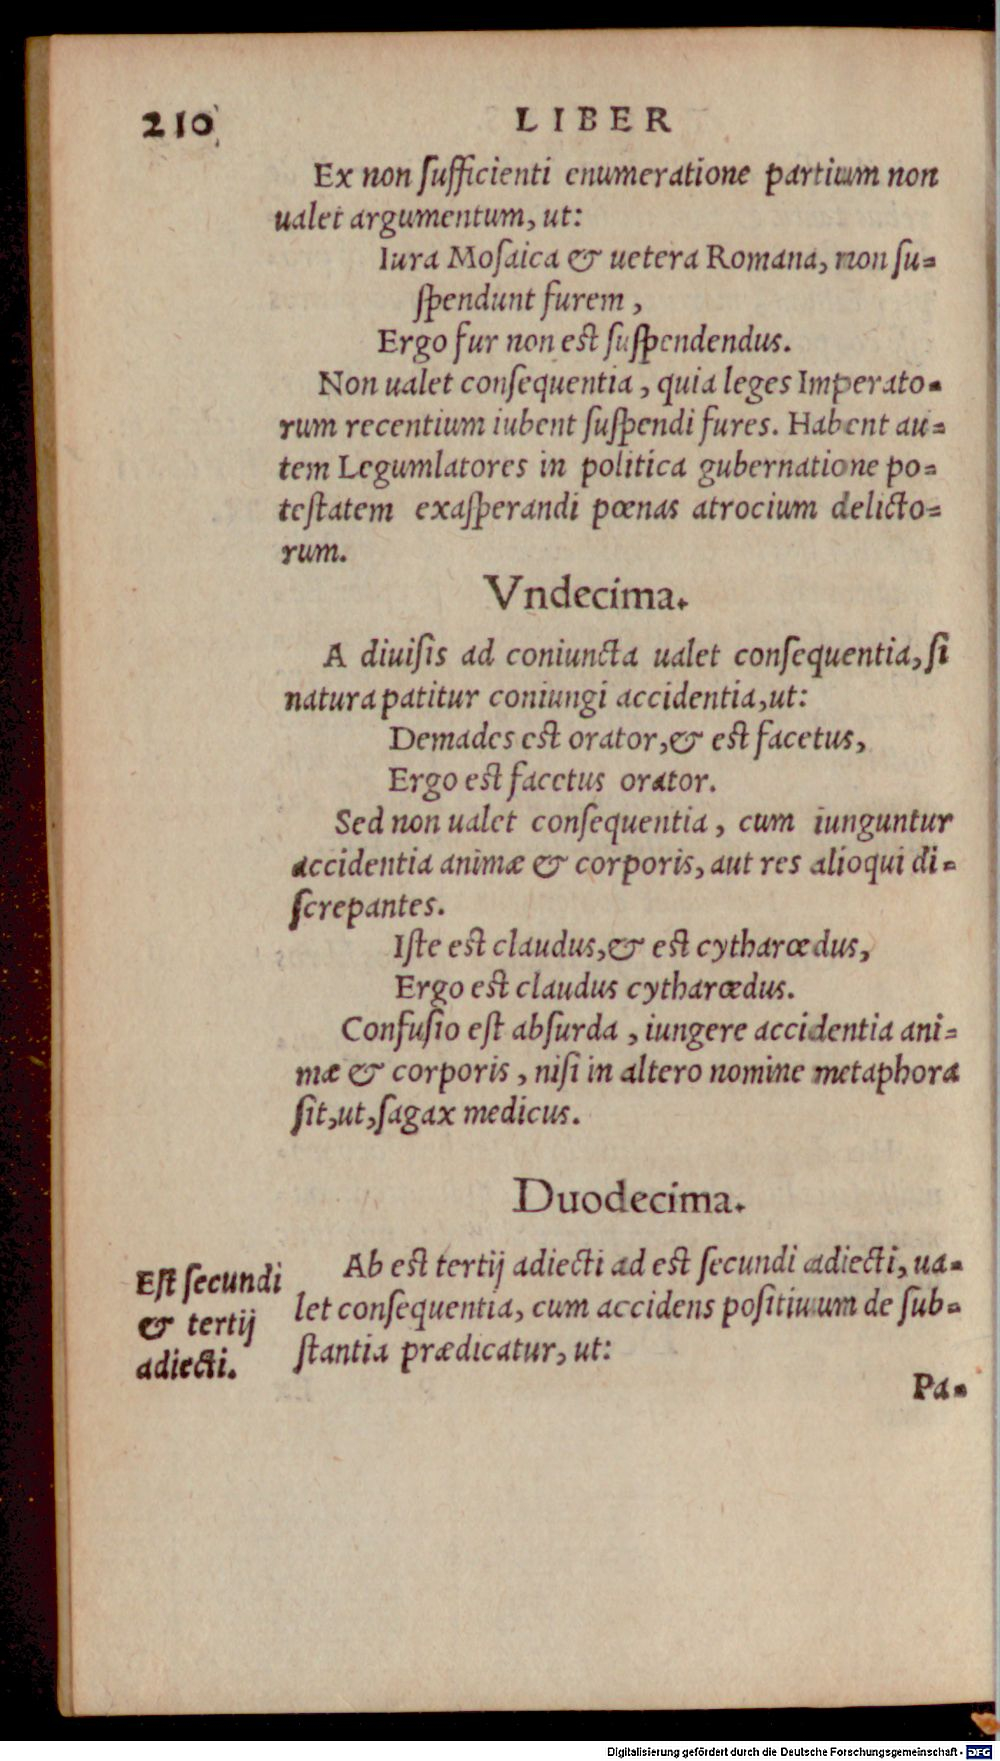 210 LIBER
Ex non ſufficienti enumeratione partium non
ualet argumentum, ut:
Iura Moſaica & uetera Romana, non ſu-
ſpendunt furem,
Ergo fur non est ſuſpendendus.
Non ualet conſequentia, quia leges Imperato-
rum recentium iubent ſuſpendi fures. Habent au-
tem Legumlatores in politica gubernatione po-
teſtatem exaſperandi pœnas atrocium delicto-
rum.
Vndecima.
A diuiſis ad coniuncta ualet conſequentia, ſi
natura patitur coniungi accidentia, ut:
Demades est orator, & est facetus,
Ergo est facetus orator.
Sed non ualet conſequentia, cum iunguntur
accidentia animæ & corporis, aut res alioqui di-
ſcrepantes.
Iſte est claudus, & est cytharœdus,
Ergo est claudus cytharœdus.
Confuſio eſt abſurda, iungere accidentia ani-
mæ & corporis, niſi in altero nomine metaphora
ſit, ut, ſagax medicus.
Duodecima.
Est ſecundi
& tertij
adiecti.
Ab est tertij adiecti ad est ſecundi adiecti, ua-
let conſequentia, cum accidens poſitiuum de ſub-
ſtantia prædicatur, ut:
Pa-
Digitalisierung gefördert durch die Deutsche Forschungsgemeinschaft - DFG